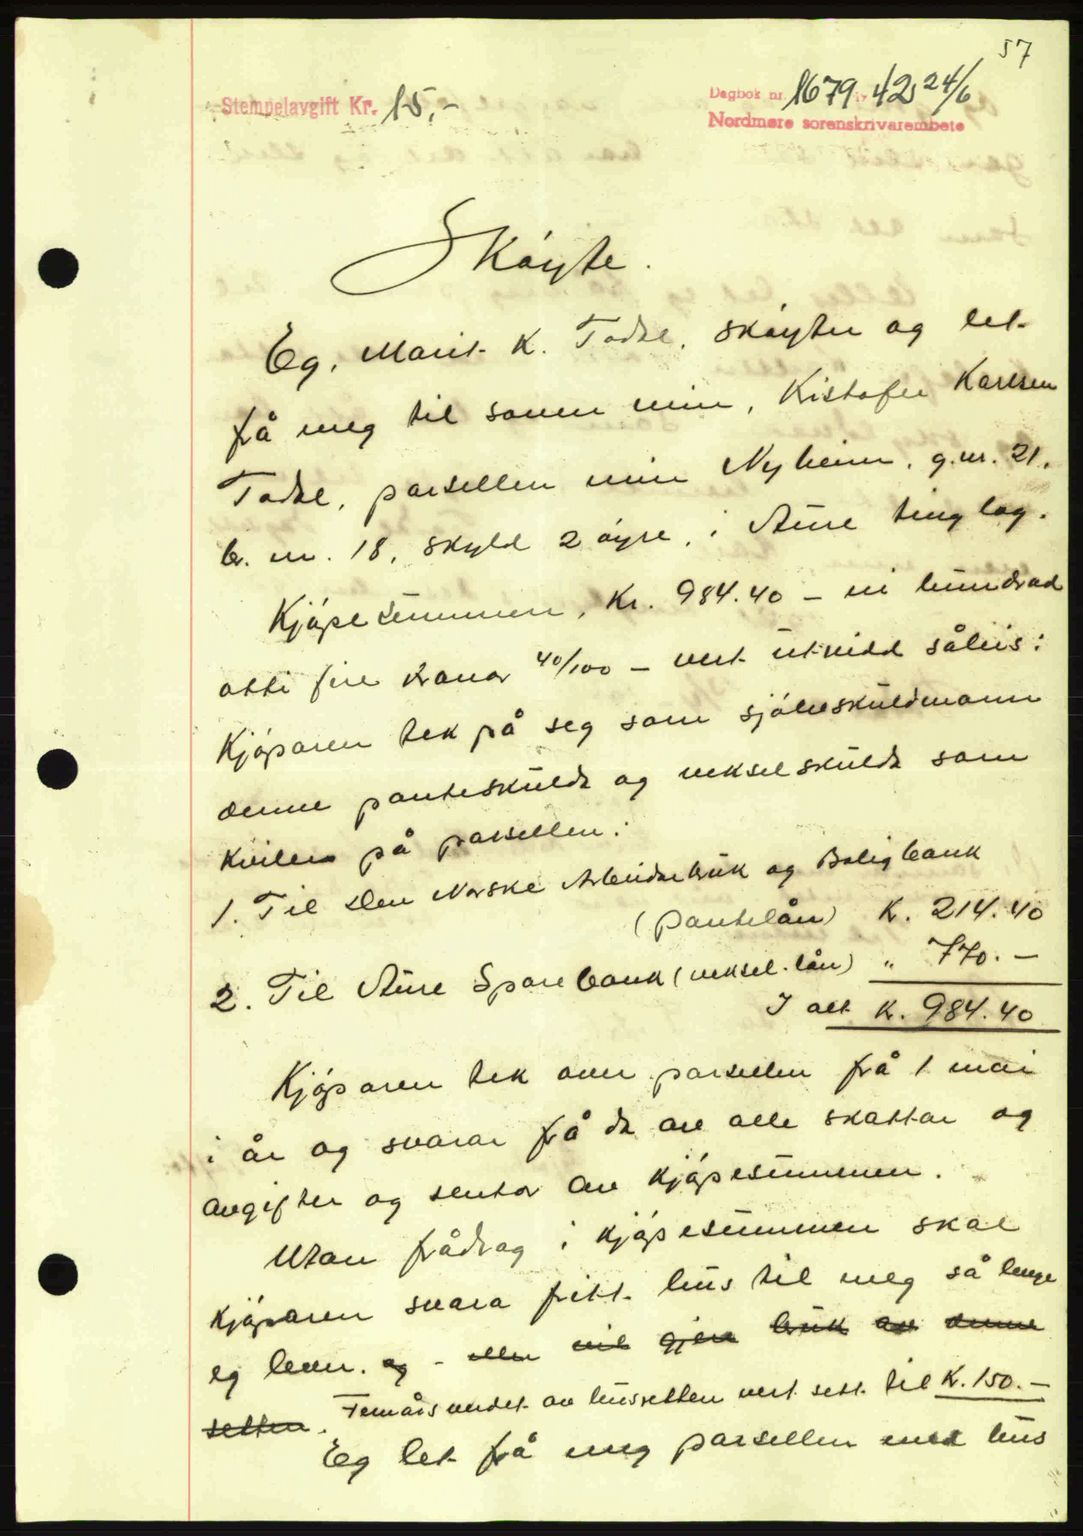 57
Stempelavgift Kr. 15.-
Dagbok nr. 1679 42 24/6
Nordmøre sorenskrivarembete
Skøyte.
Eg, Marit K. Todal, skøyter og let
frå meg til sonen min, Kistofer Karlsen
Todal, parsellen min Nyheim, g.nr. 21,
br. nr. 18, skyld 2 øyre, i Aure tinglag.
Kjøpesummen, Kr. 984.40 – ni hundrad
åtti fire kronor 40/100 – vert utreidd såleis:
Kjøparen tek på seg som sjølvskuldmann
denne panteskuld og vekselskuld som
kviler på parsellen:
1. Til Den Norske Arbeidarbruk og Boligbank
(pantelån) K. 214.40
2. Til Aure Sparebank (veksel.lån) „ 770.–
I alt K. 984.40
Kjøparen tek over parsellen frå 1 mai
i år og svarar frå då av alle skattar og
avgifter og rentor av kjøpesummen.
Utan frådrag i kjøpesummen skal
kjøparen svara fritt hus til meg så lenge
eg lever. og - eller vil gjera bruk av denne
retten. Femårsverdet av husretten vert sett til K. 150.–
Eg let frå meg parsellen med hus